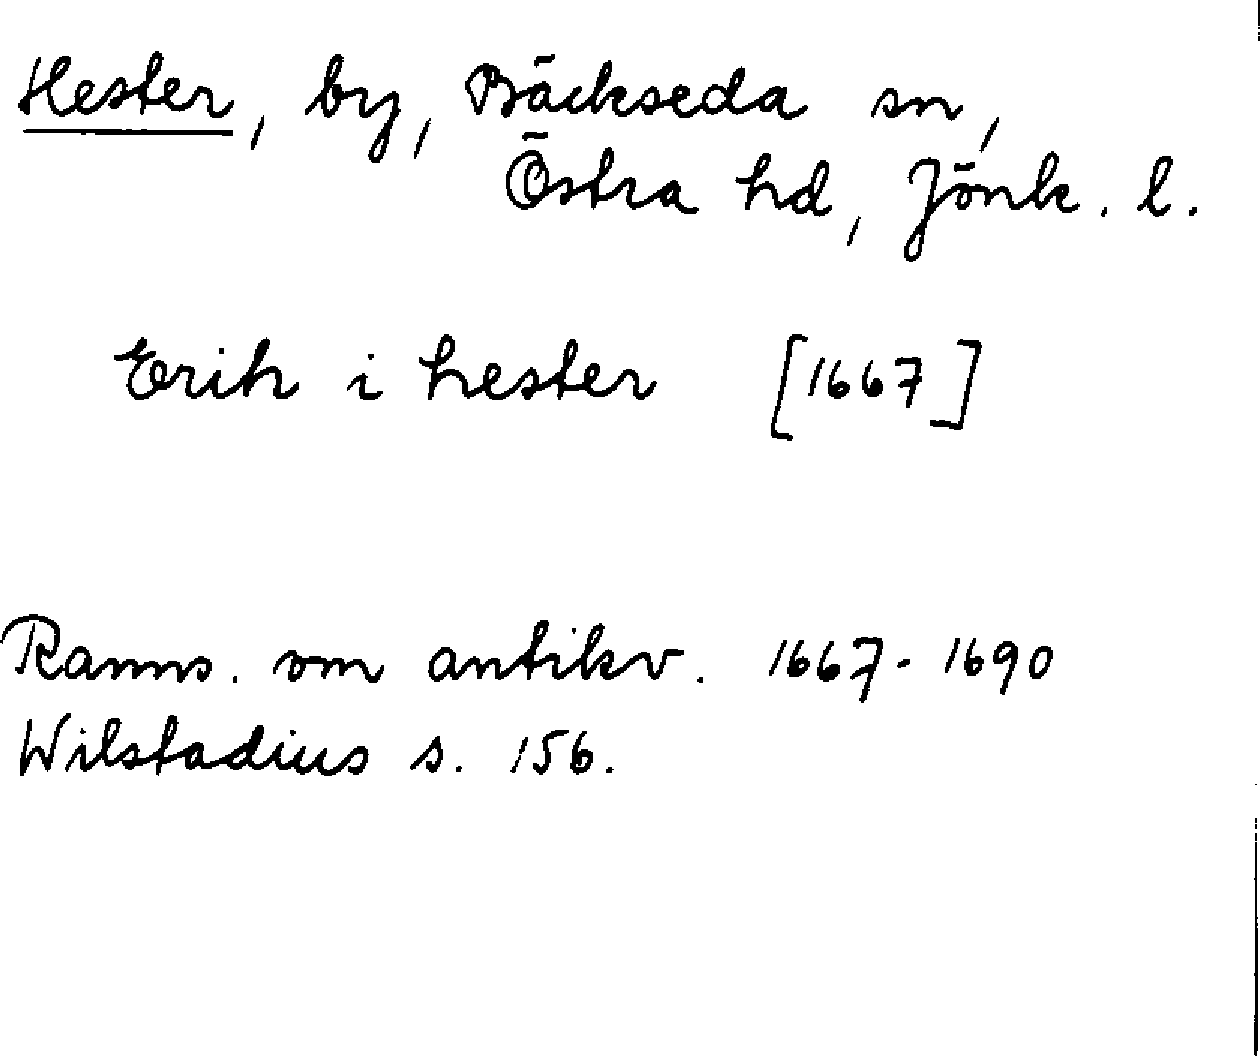 Hester, by, Bäckseda sn,
Östra hd, Jönk. l.
Erik i hester [1667]
Ranns. om antikv. 1667-1690
Wilstadius s. 156.